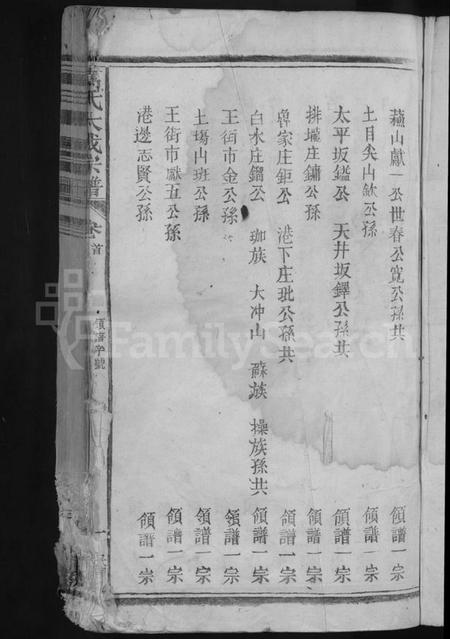 蘓山獻一公世春公寬公孫共 領譜一宗
土目尖山欽公孫 領譜一宗
太平坂鎰公 天井坂鐸公孫共 領譜一宗
排壠庄鏞公孫 領譜一宗
魯家庄鉅公 港下庄玭公孫共 領譜一宗
白水庄鑼公 珈族 大冲山 蘇族 操族孫共 領譜一宗
王街市金公孫 領譜一宗
土塲山班公孫 領譜一宗
王街市獻五公孫 領譜一宗
港邊志賢公孫 領譜一宗
氏大成宗譜 卷首 領譜字號 一
FamilySearch